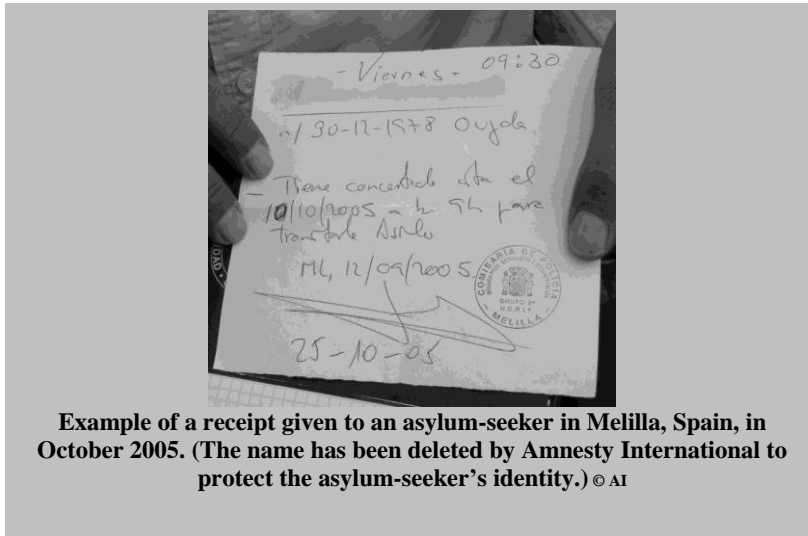 - Viernes - 09:30
n/ 30-12-1978 Oujda
- Tiene concertada cita el
10/10/2005 a las 9h para
tramitarle Asilo
ML, 12/09/2005.
COMISARIA DE POLICIA
GRUPO 2º
U.C.R.I.F.
- MELILLA -
25-10-05
Example of a receipt given to an asylum-seeker in Melilla, Spain, in
October 2005. (The name has been deleted by Amnesty International to
protect the asylum-seeker's identity.) © AI